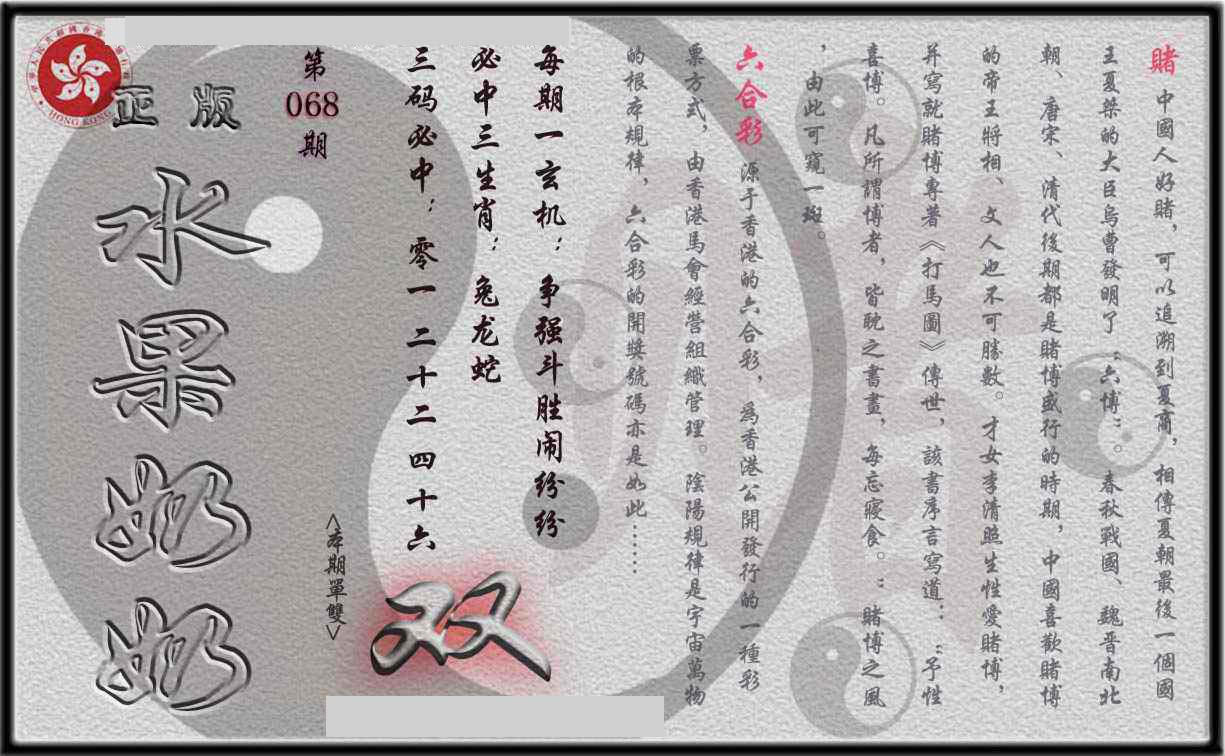 賭 中國人好賭，可以追溯到夏商，相傳夏朝最後一個國
王夏桀的大臣烏曹發明了“六博” 春秋戰國、魏晉南北
朝、唐宋、清代後期都是賭博盛行的時期，中國喜歡賭博
的帝王將相、文人也不可勝數。才女李清照生性愛賭博，
并寫就賭博專著《打馬圖》傳世，該書序言寫道：“予性
喜博。凡所謂博者，皆耽之書畫，每忘寢食。：賭博之風
，由此可窺一斑。
六合彩 源于香港的六合彩，為香港公開發行的一種彩
票方式，由香港馬會經營組織管理。陰陽規律是宇宙萬物
的根本規律，六合彩的開獎號碼亦是如此……
每期一玄机：争强斗胜闹纷纷
必中三生肖：兔龙蛇
三码必中：零一 二十二 四十六
双
<本期單雙>
第
068
期
正版
水果奶奶
HONG KONG